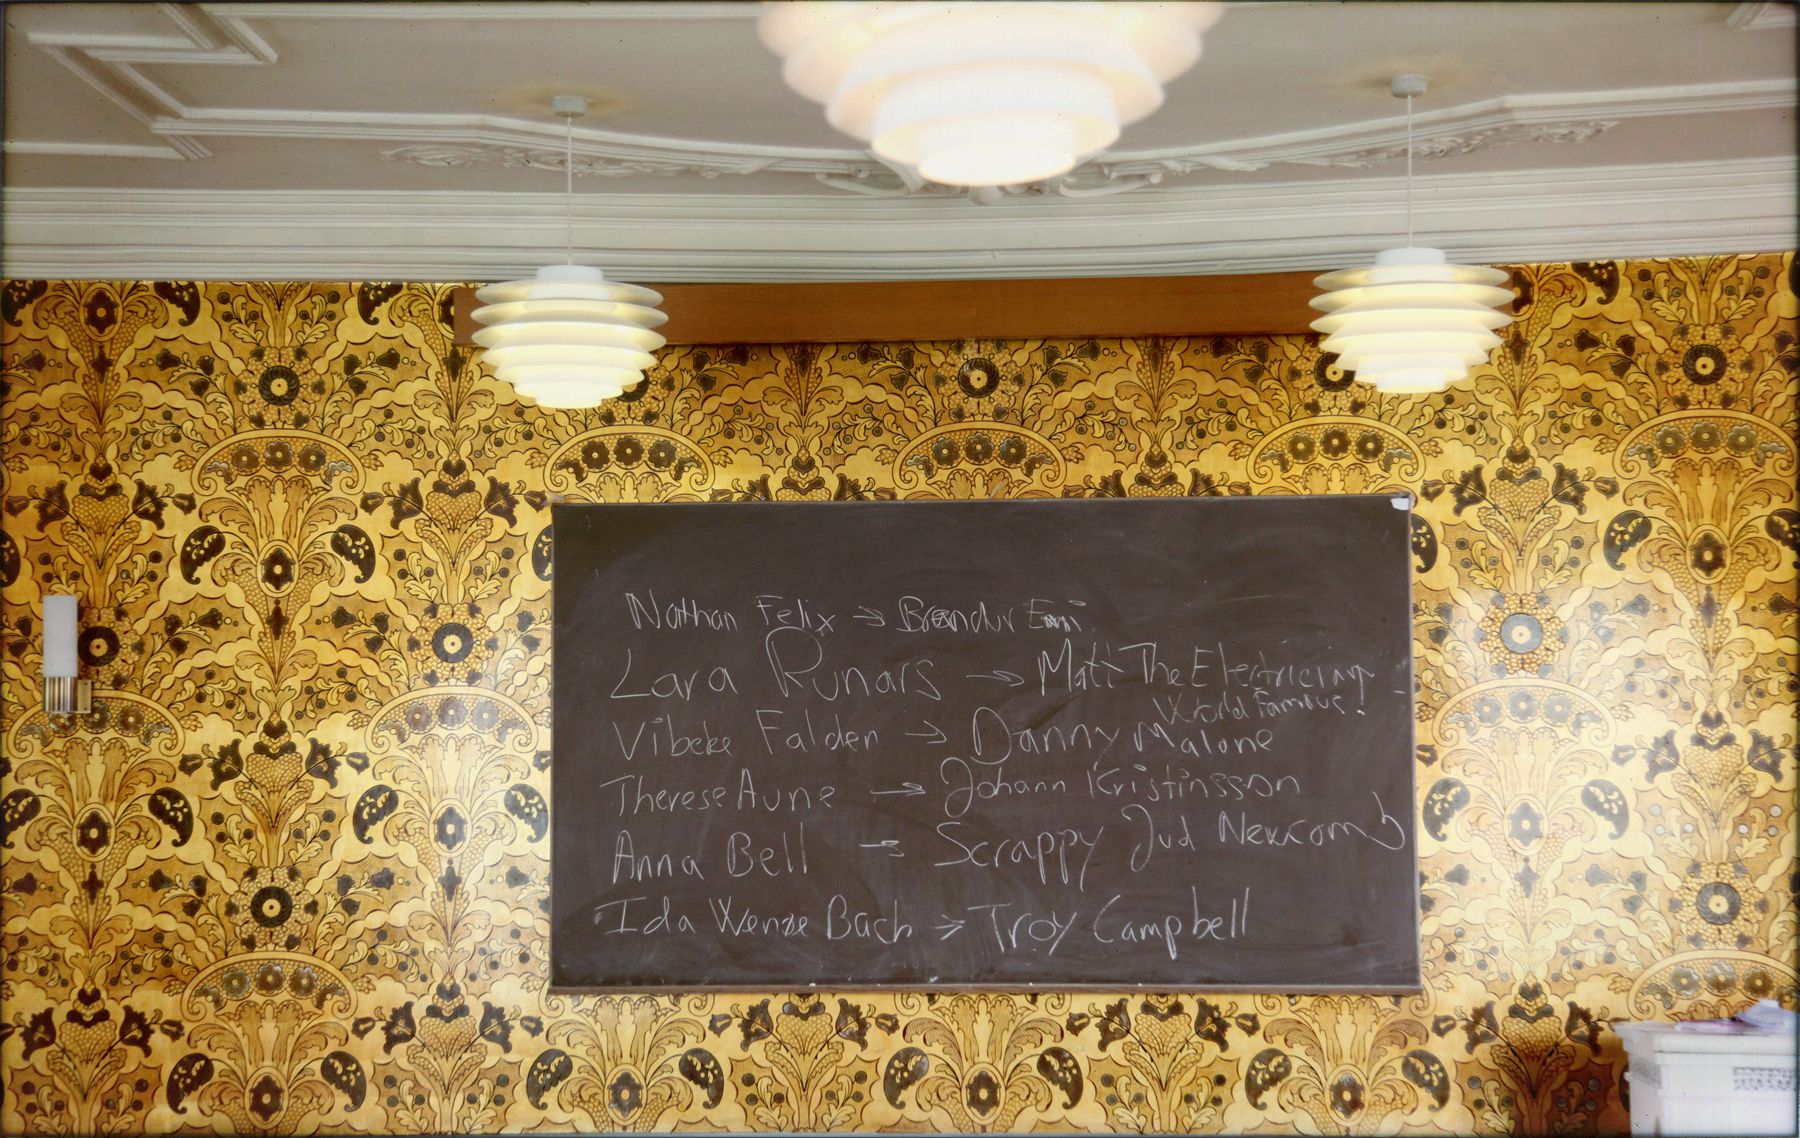 Nathan Felix → Brandur Emi
Lara Runars → Matt The Electrician
World Famous!
Vibeke Falden → Danny Malone
Therese Aune → Johann Kristinsson
Anna Bell → Scrappy Jud Newcomb
Ida Wenøe Bach → Troy Campbell